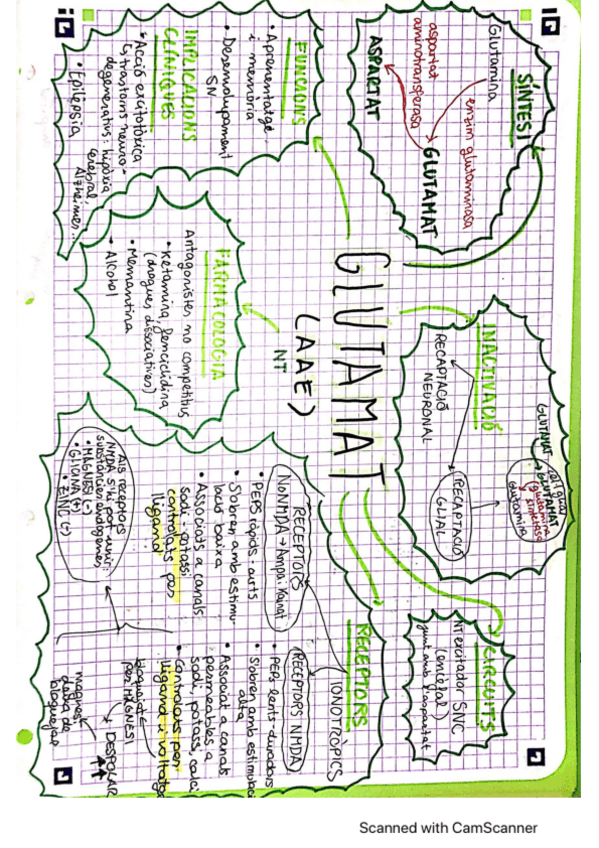 GLUTAMAT
(AAE)
NT
SÍNTESI
Glutamina
enzim glutaminasa
GLUTAMAT
aspartat
aminotransferasa
ASPARTAT
INACTIVACIÓ
RECAPTACIÓ
NEURONAL
RECAPTACIÓ
GLIAL
GLUTAMAT
GLUTAMAT
(glutamina
sintetasa)
Glutamina
CIRCUITS
NT excitador SNC
(encèfal)
junt amb l'aspartat
RECEPTORS
IONOTROPICS
RECEPTORS
NoNMDA → Ampa i Kainat
• PEPS ràpids, curts
• S'obren amb estimu
lació baixa
• Associats a canals
sodi i potassi
controlats per
lligand
RECEPTORS NMDA
• PEPs lents-duradors
• S'obren amb estimulació
alta
• Associat a canals
permeables a
sodi, potassi, calci
• Controlats per
lligand i voltatge
bloquejats
per MAGNESI
DESPOLAR
magnesi
deixa de
bloquejar
Als receptors
NMDA s'hi pot unir:
substàncies endògenes
• MAGNESI (-)
• GLICINA (+)
• ZINC (-)
FARMACOLOGIA
Antagonistes no competitius
• Ketamina, fenciclidina
(drogues dissociatives)
• Memantina
• Alcohol
FUNCIONS
• Aprenentatge
i memòria
• Desenvolupament
SN
IMPLICACIONS
CLÍNIQUES
• Acció excitotòxica
↳ trastorns neuro-
degeneratius: hipòxia
cerebral,
Alzheimer...
• Epilèpsia
Scanned with CamScanner